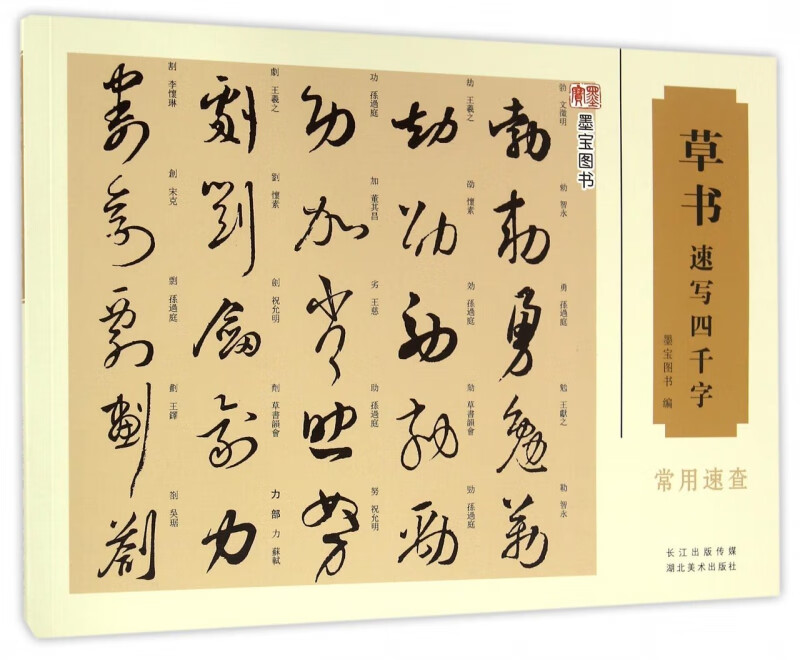 草书
速写四千字
墨宝图书 编
常用速查
长江出版传媒
湖北美术出版社
墨寶
墨宝图书
割 李懷琳
創 宋克
剽 孫過庭
劃 王鐸
劄 吳琚
劇 王羲之
劉 懷素
劍 祝允明
劑 草書韻會
力部 力 蘇軾
功 孫過庭
加 董其昌
劣 王慈
助 孫過庭
努 祝允明
劫 王羲之
劭 懷素
効 孫過庭
劾 草書韻會
勁 孫過庭
勃 文徵明
勅 智永
勇 孫過庭
勉 王獻之
勒 智永